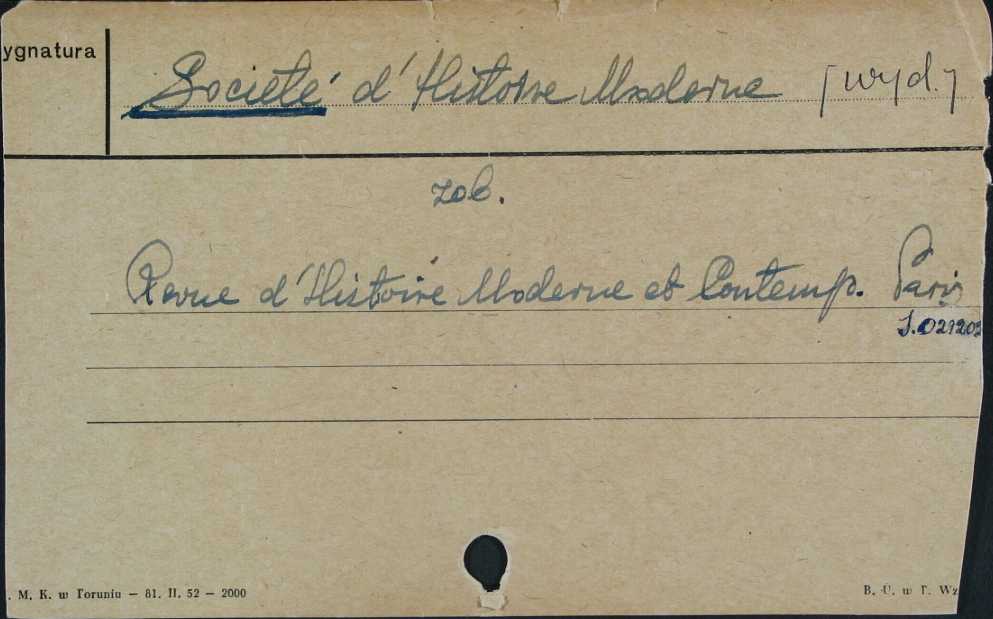 ygnatura
Société d'Histoire Moderne [wyd.]
zob.
Revue d'Histoire Moderne et Contemp. Paris
J.029202
. M. K. w Toruniu — 81. II. 52 — 2000
B. U. w T. Wz